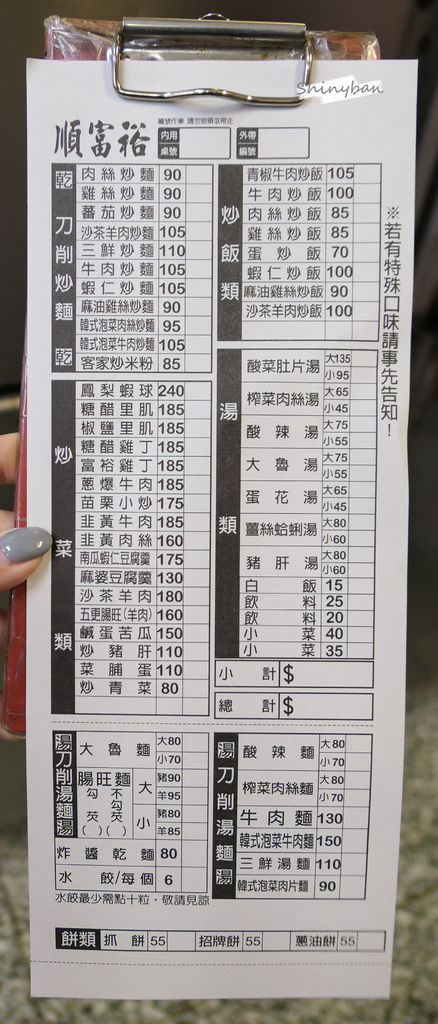 Shinyban
編號作業 請勿毀損或帶走
順富裕
內用桌號
外帶編號
※若有特殊口味請事先告知！
乾 刀削炒麵 乾
肉絲炒麵 90
雞絲炒麵 90
蕃茄炒麵 90
沙茶羊肉炒麵 105
三鮮炒麵 110
牛肉炒麵 105
蝦仁炒麵 105
麻油雞絲炒麵 90
韓式泡菜肉絲炒麵 95
韓式泡菜牛肉炒麵 105
客家炒米粉 85
炒飯類
青椒牛肉炒飯 105
牛肉炒飯 100
肉絲炒飯 85
雞絲炒飯 85
蛋炒飯 70
蝦仁炒飯 100
麻油雞絲炒飯 90
沙茶羊肉炒飯 100
炒菜類
鳳梨蝦球 240
糖醋里肌 185
椒鹽里肌 185
糖醋雞丁 185
富裕雞丁 185
蔥爆牛肉 185
苗栗小炒 175
韭黃牛肉 185
韭黃肉絲 160
南瓜蝦仁豆腐羹 175
麻婆豆腐羹 130
沙茶羊肉 180
五更腸旺(羊肉) 160
鹹蛋苦瓜 150
炒豬肝 110
菜脯蛋 110
炒青菜 80
湯類
酸菜肚片湯 大135 小95
榨菜肉絲湯 大65 小45
酸辣湯 大75 小55
大魯湯 大75 小55
蛋花湯 大65 小45
薑絲蛤蜊湯 大80 小60
豬肝湯 大80 小60
白飯 15
飲料 25
飲料 20
小菜 40
小菜 35
小計 $
總計 $
湯 刀削湯麵 湯
大魯麵 大80 小70
腸旺麵 勾芡( ) 不勾芡( ) 大 豬90 羊95 小 豬80 羊85
炸醬乾麵 80
水餃/每個 6
水餃最少需點十粒，敬請見諒
湯 刀削湯麵 湯
酸辣麵 大80 小70
榨菜肉絲麵 大80 小70
牛肉麵 130
韓式泡菜牛肉麵 150
三鮮湯麵 110
韓式泡菜肉片麵 90
餅類 抓餅 55 招牌餅 55 蔥油餅 55